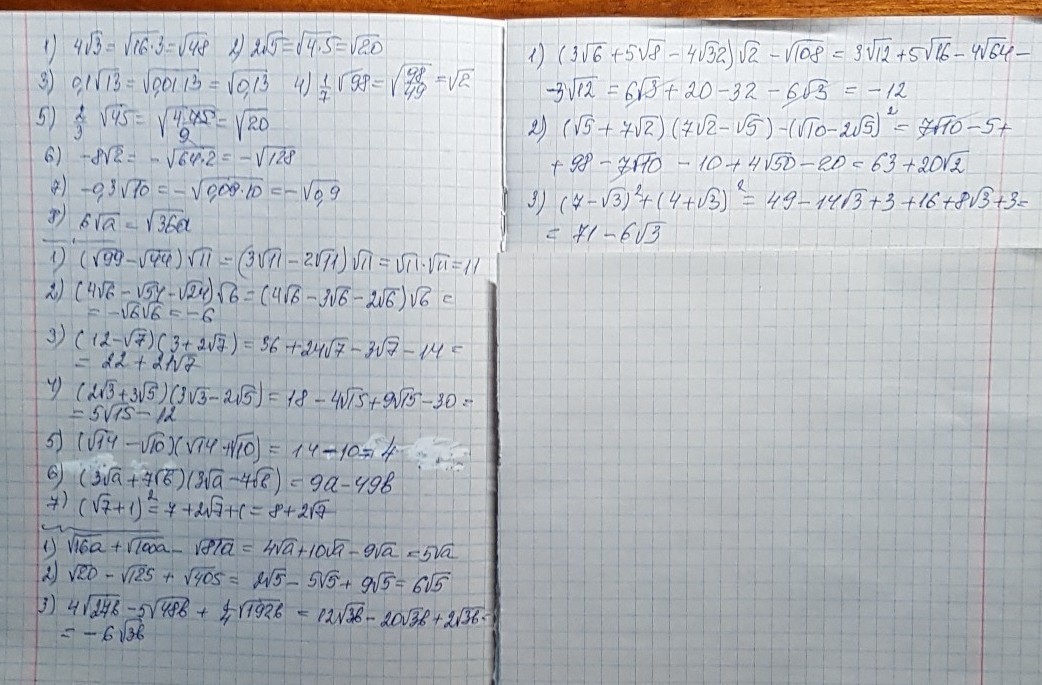 1) 4√3 = √16·3 = √48 2) 2√5 = √4·5 = √20
3) 0,1√13 = √0,01·13 = √0,13 4) 1/7 √98 = √98/49 = √2
5) 2/3 √45 = √4·45/9 = √20
6) -8√2 = -√64·2 = -√128
7) -0,3√10 = -√0,09·10 = -√0,9
8) 6√a = √36a
1) (√99 - √44)√11 = (3√11 - 2√11)√11 = √11·√11 = 11
2) (4√6 - √54 - √24)√6 = (4√6 - 3√6 - 2√6)√6 =
= -√6√6 = -6
3) (12-√7)(3+2√7) = 36 + 24√7 - 3√7 - 14 =
= 22 + 21√7
4) (2√3+3√5)(3√3-2√5) = 18 - 4√15 + 9√15 - 30 =
= 5√15 - 12
5) (√14 - √10)(√14+√10) = 14 - 10 = 4
6) (3√a + 7√b)(3√a - 7√b) = 9a - 49b
7) (√7+1)² = 7 + 2√7 + 1 = 8 + 2√7
1) √16a + √100a - √81a = 4√a + 10√a - 9√a = 5√a
2) √20 - √125 + √405 = 2√5 - 5√5 + 9√5 = 6√5
3) 4√27b - 5√48b + 1/4 √192b = 12√3b - 20√3b + 2√3b =
= -6√3b
1) (3√6 + 5√8 - 4√32)√2 - √108 = 3√12 + 5√16 - 4√64 -
-3√12 = 6√3 + 20 - 32 - 6√3 = -12
2) (√5 + 7√2)(7√2 - √5) - (√10 - 2√5)² = 7√10 - 5 +
+ 98 - 7√10 - 10 + 4√50 - 20 = 63 + 20√2
3) (7 - √3)² + (4 + √3)² = 49 - 14√3 + 3 + 16 + 8√3 + 3 =
= 71 - 6√3